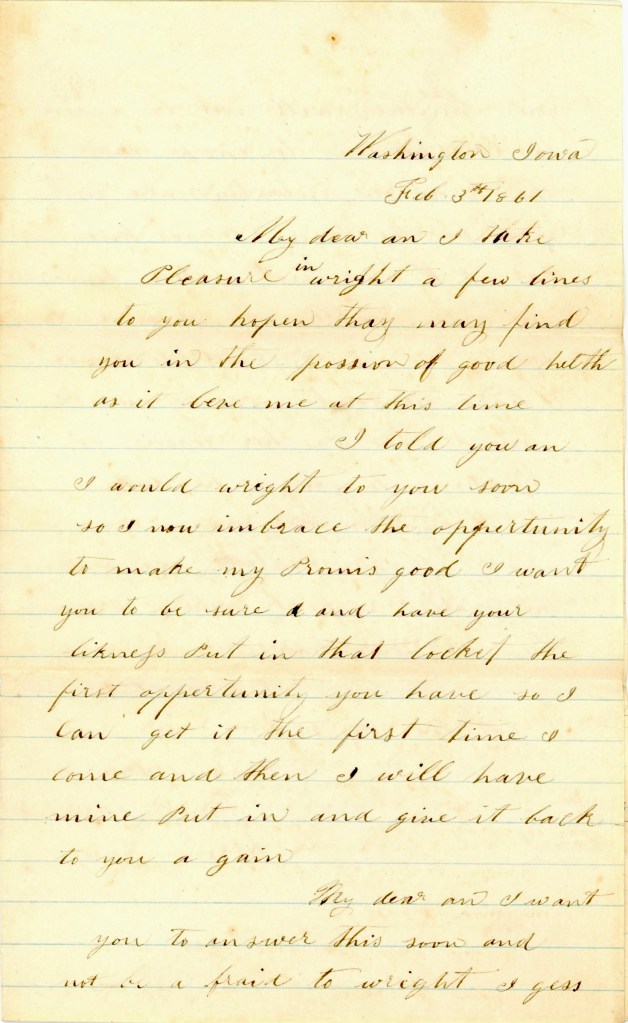 Washington Iowa
Feb 3th 1861
My dear an I take
Pleasure in wright a few lines
to you hopen thay may find
you in the possion of good helth
as it leve me at this time
I told you an
I would wright to you soon
so I now imbrace the oppertunity
to make my Promis good I want
you to be sure and have your
likness Put in that locket the
first oppertunity you have so I
can get it the first time I
come and then I will have
mine Put in and give it back
to you a gain
My dear an I want
you to answer this soon and
not be a fraid to wright I gess